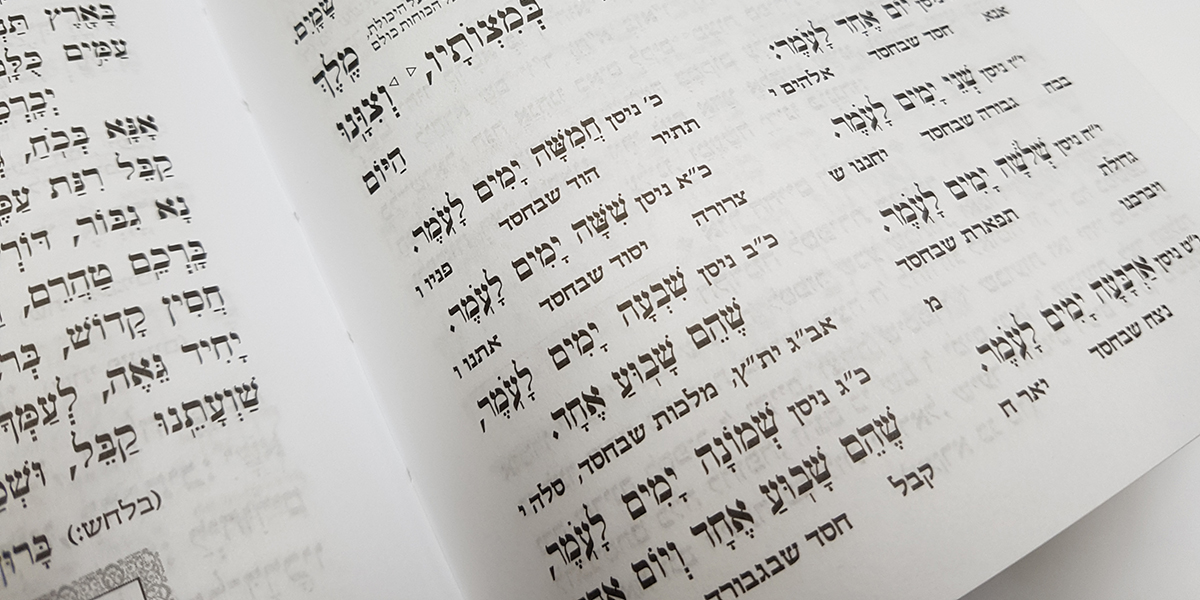 שָׁמָיִם.
בְּמִצְוֹתָיו, וְצִוָּנוּ
מֶלֶךְ
הַיּוֹם
יוֹם אֶחָד לָעֹמֶר:
אנא
חסד שבחסד
אלהים י
ניסן שְׁנֵי יָמִים לָעֹמֶר.
בכח
גבורה שבחסד
יחננו ש
י״ח ניסן שְׁלֹשָׁה יָמִים לָעֹמֶר.
גדולת
תפארת שבחסד
ויברכנו
י״ט ניסן אַרְבָּעָה יָמִים לָעֹמֶר.
נצח שבחסד
יאר ח
כ׳ ניסן חֲמִשָּׁה יָמִים לָעֹמֶר.
תתיר
הוד שבחסד
פניו ו
כ״א ניסן שִׁשָּׁה יָמִים לָעֹמֶר.
צרורה
יסוד שבחסד
אתנו ו
כ״ב ניסן שִׁבְעָה יָמִים לָעֹמֶר,
שֶׁהֵם שָׁבוּעַ אֶחָד.
אב״ג ית״ץ, מלכות שבחסד, סלה י
כ״ג ניסן שְׁמוֹנָה יָמִים לָעֹמֶר,
שֶׁהֵם שָׁבוּעַ אֶחָד וְיוֹם
קבל
חסד שבגבורה
בָּאָרֶץ
עַמִּים
אָנָּא בְּכֹחַ,
קַבֵּל רִנַּת
נָא גִבּוֹר,
בָּרְכֵם טַהֲרֵם,
חֲסִין קָדוֹשׁ,
יָחִיד גֵּאֶה, לְעַמְּךָ
שַׁוְעָתֵנוּ קַבֵּל,
(בלחש:)